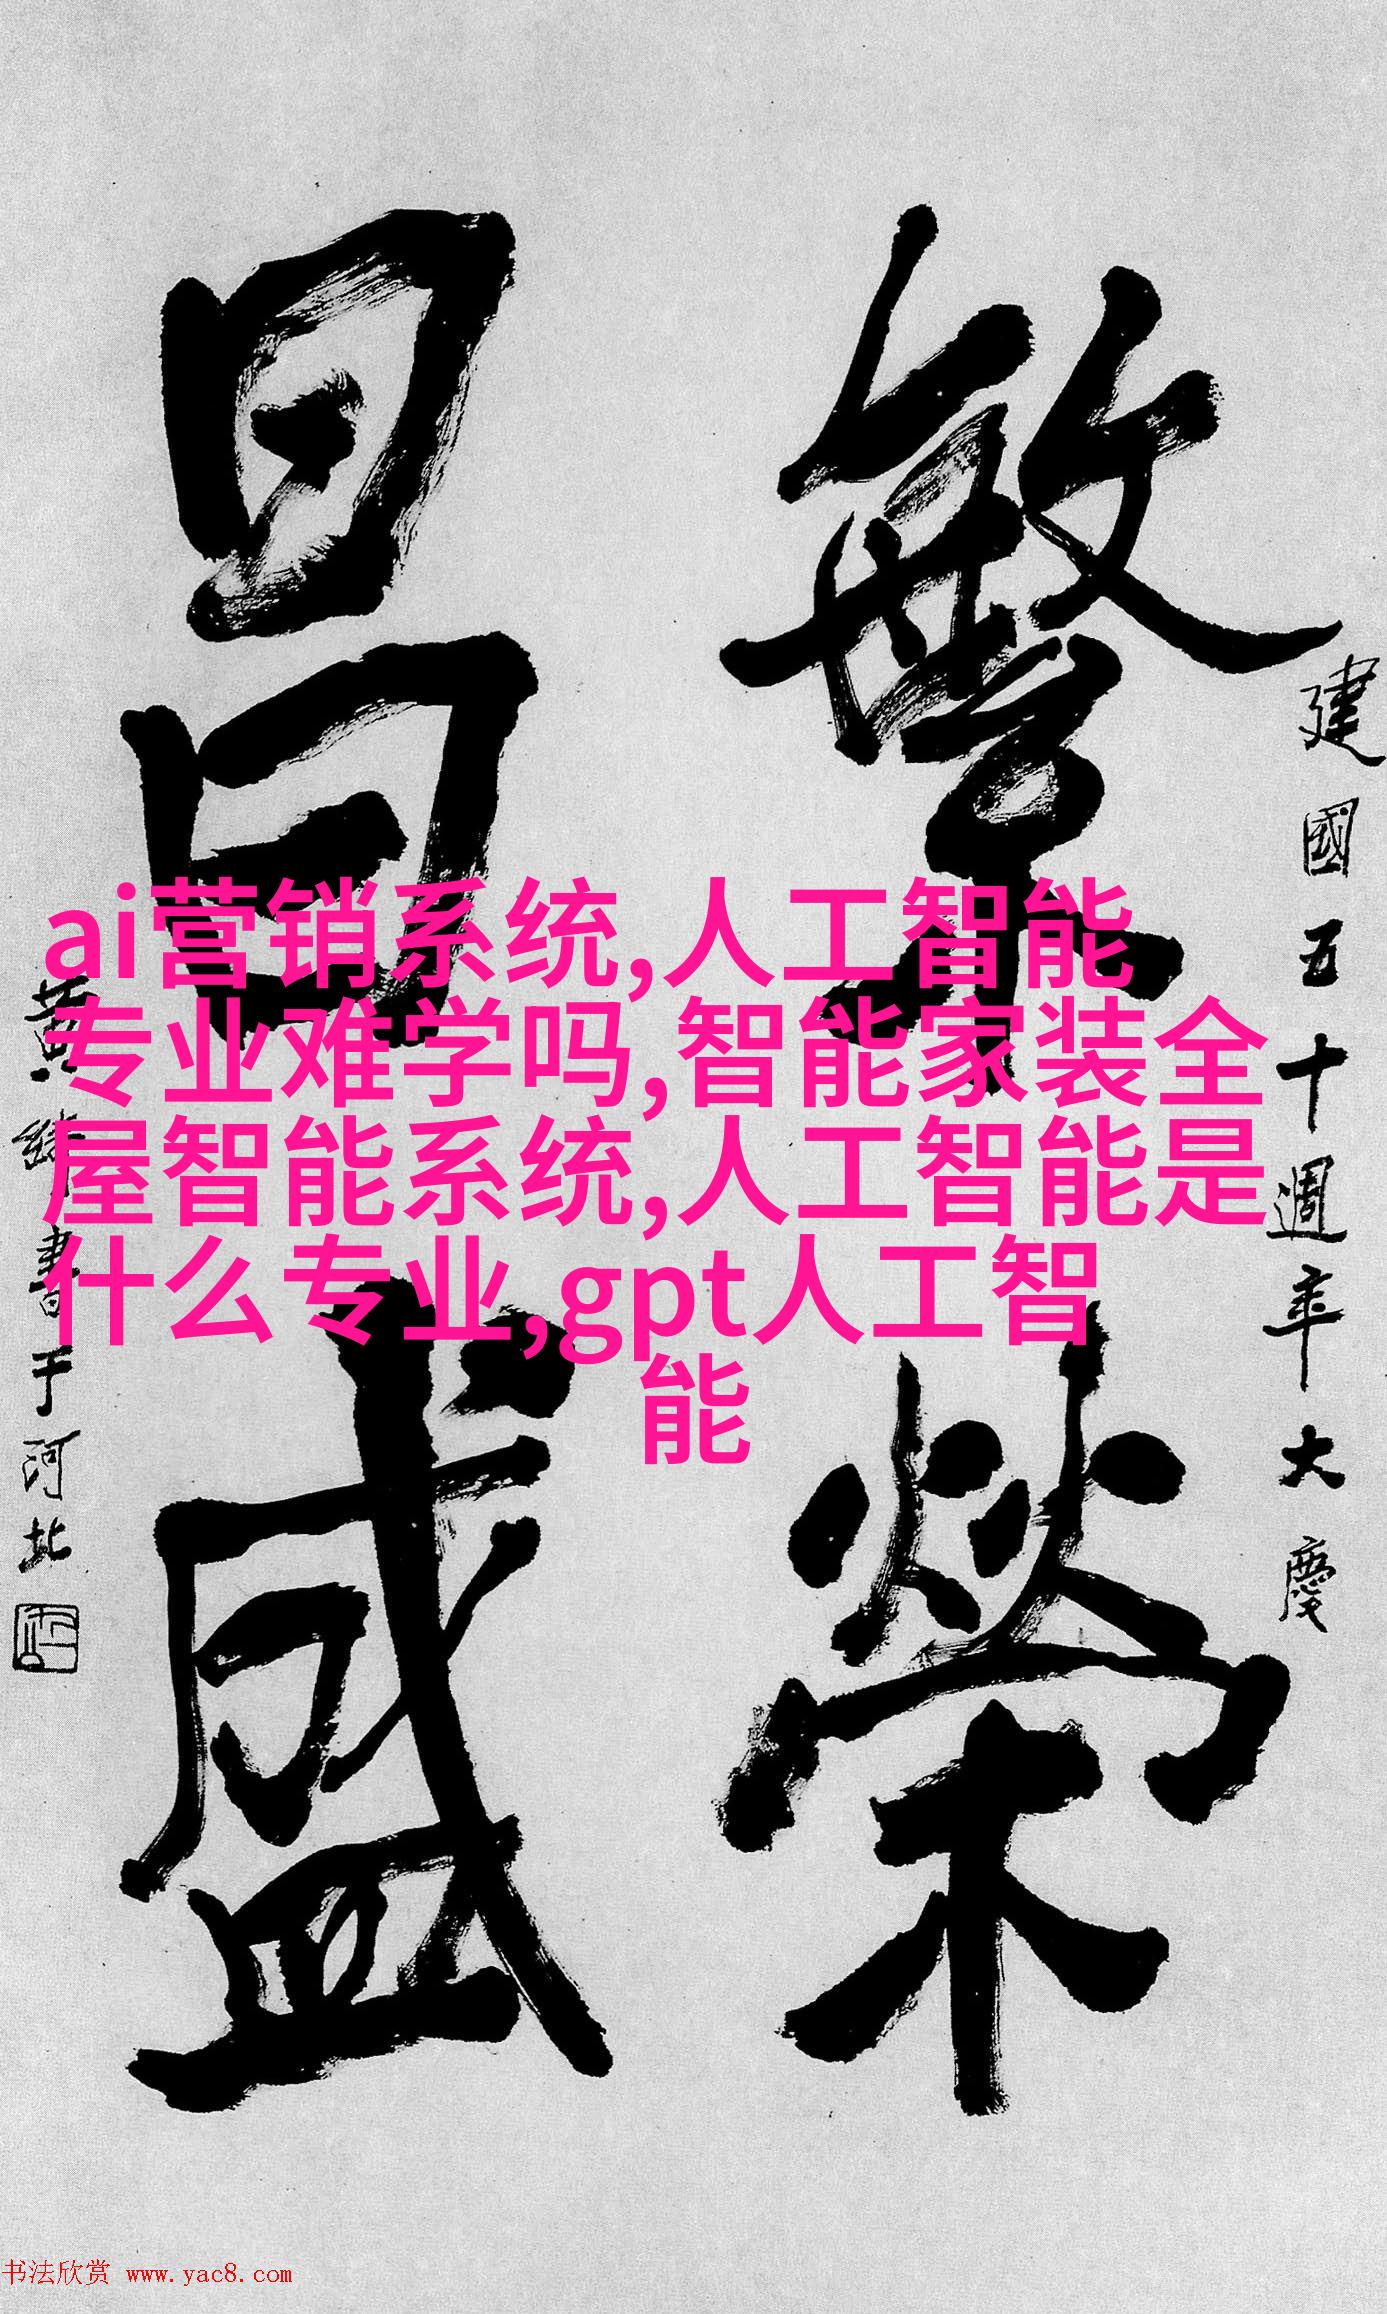 建國五十週年大慶
繁榮
昌盛
黄綺書于河北
ai营销系统,人工智能
专业难学吗,智能家装全
屋智能系统,人工智能是
什么专业,gpt人工智
能
书法欣赏 www.yac8.com